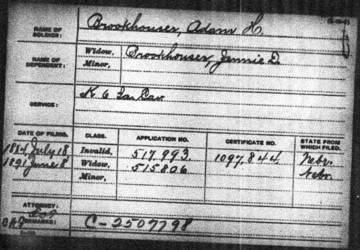 NAME OF SOLDIER: Brookhouser, Adam H.
NAME OF DEPENDENT: Widow, Brookhouser, Jennie D.
Minor,
SERVICE: K 6 Ia. Cav
DATE OF FILING. CLASS. APPLICATION NO. CERTIFICATE NO. STATE FROM WHICH FILED.
1884 July 18 Invalid, 517.993 1097.844 Nebr.
1891 June 8 Widow, 515806 Nebr.
Minor,
ATTORNEY:
REMARKS: C-2507798